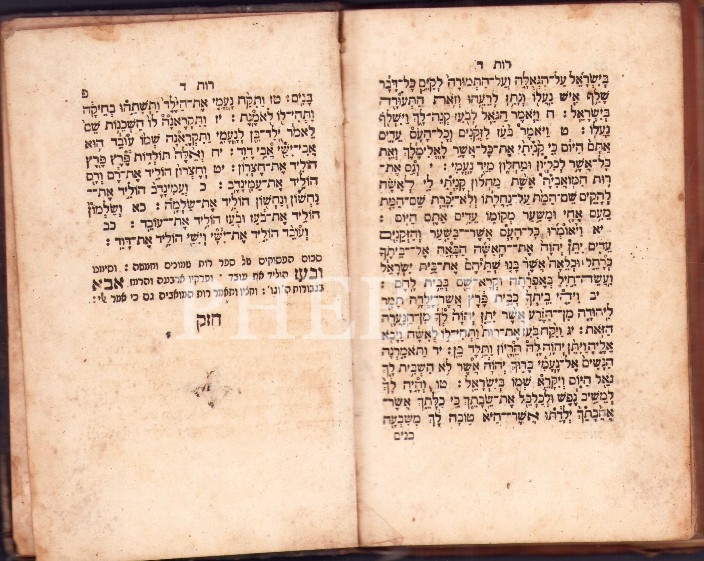 רות ד
בְּיִשְׂרָאֵל עַל־הַגְּאֻלָּה וְעַל־הַתְּמוּרָה לְקַיֵּם כָּל־דָּבָר
שָׁלַף אִישׁ נַעֲלוֹ וְנָתַן לְרֵעֵהוּ וְזֹאת הַתְּעוּדָה
בְּיִשְׂרָאֵל : ח וַיֹּאמֶר הַגֹּאֵל לְבֹעַז קְנֵה־לָךְ וַיִּשְׁלֹף
נַעֲלוֹ : ט וַיֹּאמֶר בֹּעַז לַזְּקֵנִים וְכָל־הָעָם עֵדִים
אַתֶּם הַיּוֹם כִּי קָנִיתִי אֶת־כָּל־אֲשֶׁר לֶאֱלִימֶלֶךְ וְאֵת
כָּל־אֲשֶׁר לְכִלְיוֹן וּמַחְלוֹן מִיַּד נָעֳמִי : י וְגַם אֶת־
רוּת הַמּוֹאֲבִיָּה אֵשֶׁת מַחְלוֹן קָנִיתִי לִי לְאִשָּׁה
לְהָקִים שֵׁם־הַמֵּת עַל־נַחֲלָתוֹ וְלֹא־יִכָּרֵת שֵׁם־הַמֵּת
מֵעִם אֶחָיו וּמִשַּׁעַר מְקוֹמוֹ עֵדִים אַתֶּם הַיּוֹם :
יא וַיֹּאמְרוּ כָּל־הָעָם אֲשֶׁר־בַּשַּׁעַר וְהַזְּקֵנִים
עֵדִים יִתֵּן יְהוָה אֶת־הָאִשָּׁה הַבָּאָה אֶל־בֵּיתֶךָ
כְּרָחֵל וּכְלֵאָה אֲשֶׁר בָּנוּ שְׁתֵּיהֶם אֶת־בֵּית יִשְׂרָאֵל
וַעֲשֵׂה־חַיִל בְּאֶפְרָתָה וּקְרָא־שֵׁם בְּבֵית לָחֶם :
יב וִיהִי בֵיתְךָ כְּבֵית פֶּרֶץ אֲשֶׁר־יָלְדָה תָמָר
לִיהוּדָה מִן־הַזֶּרַע אֲשֶׁר יִתֵּן יְהוָה לְךָ מִן־הַנַּעֲרָה
הַזֹּאת : יג וַיִּקַּח בֹּעַז אֶת־רוּת וַתְּהִי־לוֹ לְאִשָּׁה וַיָּבֹא
אֵלֶיהָ וַיִּתֵּן יְהוָה לָהּ הֵרָיוֹן וַתֵּלֶד בֵּן : יד וַתֹּאמַרְנָה
הַנָּשִׁים אֶל־נָעֳמִי בָּרוּךְ יְהוָה אֲשֶׁר לֹא הִשְׁבִּית לָךְ
גֹּאֵל הַיּוֹם וְיִקָּרֵא שְׁמוֹ בְּיִשְׂרָאֵל : טו וְהָיָה לָךְ
לְמֵשִׁיב נֶפֶשׁ וּלְכַלְכֵּל אֶת־שֵׂיבָתֵךְ כִּי כַלָּתֵךְ אֲשֶׁר־
אֲהֵבַתֶךְ יְלָדַתּוּ אֲשֶׁר־הִיא טוֹבָה לָךְ מִשִּׁבְעָה
בנים
רות ד
פ
בָּנִים : טז וַתִּקַּח נָעֳמִי אֶת־הַיֶּלֶד וַתְּשִׁתֵהוּ בְחֵיקָהּ
וַתְּהִי־לוֹ לְאֹמֶנֶת : יז וַתִּקְרֶאנָה לוֹ הַשְּׁכֵנוֹת שֵׁם
לֵאמֹר יֻלַּד־בֵּן לְנָעֳמִי וַתִּקְרֶאנָה שְׁמוֹ עוֹבֵד הוּא
אֲבִי־יִשַׁי אֲבִי דָוִד : יח וְאֵלֶּה תּוֹלְדוֹת פָּרֶץ פֶּרֶץ
הוֹלִיד אֶת־חֶצְרוֹן : יט וְחֶצְרוֹן הוֹלִיד אֶת־רָם וְרָם
הוֹלִיד אֶת־עַמִּינָדָב : כ וְעַמִּינָדָב הוֹלִיד אֶת־
נַחְשׁוֹן וְנַחְשׁוֹן הוֹלִיד אֶת־שַׂלְמָה : כא וְשַׂלְמוֹן
הוֹלִיד אֶת־בֹּעַז וּבֹעַז הוֹלִיד אֶת־עוֹבֵד : כב
וְעֹבֵד הוֹלִיד אֶת־יִשָׁי וְיִשַׁי הוֹלִיד אֶת־דָּוִד :
סכום הפסוקים של ספר רות שמונים וחמשה : וסימנו
ובעז הוליד את עובד : ופרקיו ארבעה וסדרו אבא
בגבורות ה' וגו' : וחציו ותאמר רות המואביה גם כי אמר אלי :
חזק